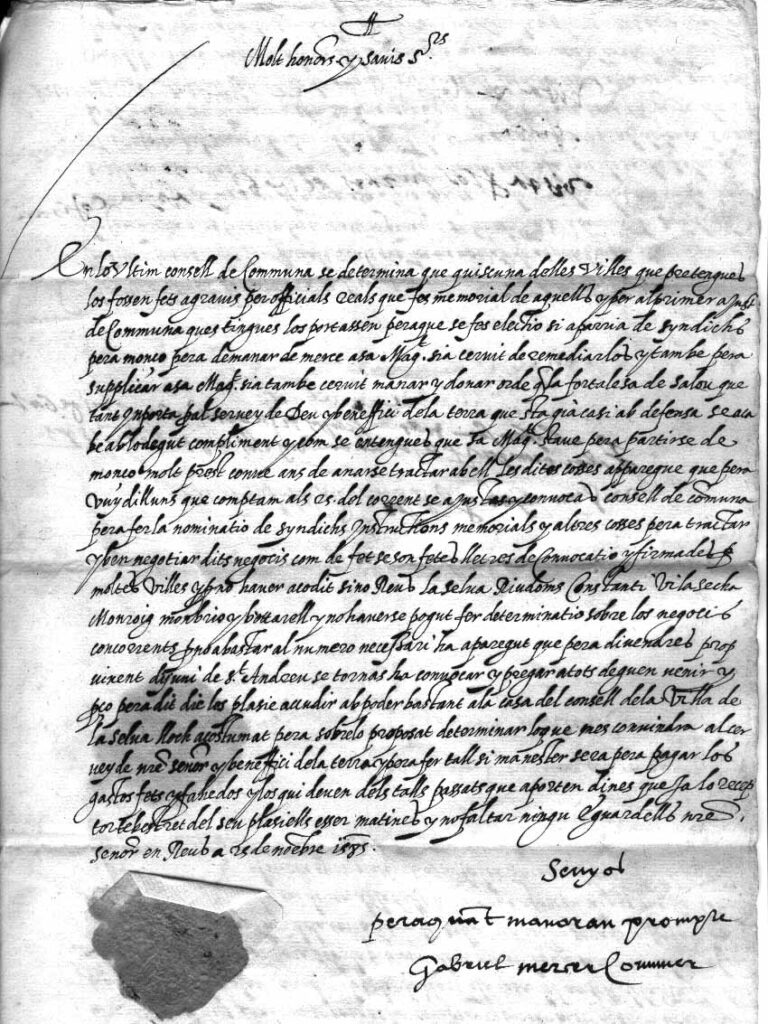 Molt honors y savis srs
En lo ultim consell de Communa se determina que quiscuna delles villes que pretengues
los fossen fets agravis per officials reals que fes memorial de aquells y per al primer ajust
de Communa ques tingues los portassen peraque se fes electio si aparria de syndichs
pera monço pera demanar de merce a sa Magt. sia servit de remediarlos y tambe pera
supplicar a sa Magt. sia tambe servit manar y donar orde q la fortalesa de Salou que
tant inporta pal servey de Deu y beneffici de la terra que sta già casi ab defensa se aca
be ab lo degut compliment y com se entengues que sa Magt. stave pera partirse de
monço molt prest convé ans de anarse tractar ab ell les dites cosses apparegue que pera
vuy dilluns que comptam als 25 del corrent se ajustas y convocas consell de comuna
pera fer la nominatio de syndichs Instructions memorials y altres cosses pera tractar
y ben negotiar dits negocis com de fet se son fetes lletres de convocatio y firmades p
moltes villes y p no haver acodit sino Reus la selva Riudoms Constanti Vilasecha
Monroig monbrio y botarell y no haverse pogut fer determinatio sobre los negocis
concorrents p no abastar al numero necessari ha aparegut que pera divendres prop
vinent dejuni de st. Andreu se tornas ha convocar y pregar a tots deguen venir y
pço pera dit die los plasie accudir ab poder bastant a la casa del consell de la Villa de
la selva lloch acostumat pera sobre lo proposat determinar lo que mes convindra al cer
vey de nre senor y beneffici de la terra y pera fer tall si manester sera pera pagar los
gastos fets y fahedos y los qui deven dels talls passats que aporten dines que ja lo recep
tor te bestret del seu plasiells esser matines y no faltar ningu E guardells nre
senor en Reus a 25 de noebre 1585.
Senyos
peraquāt manoran prompte
Gabriel mercer Commer